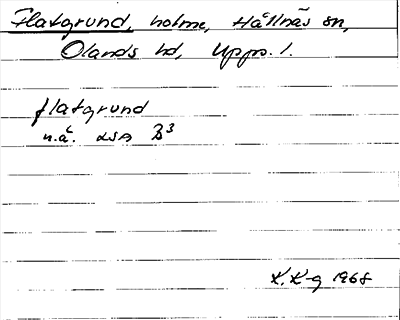 Flatgrund, holme, Hållnäs sn,
Olands hd, Upps. l.
flatgrund
n.å. LSA B³
K. K-g 1968